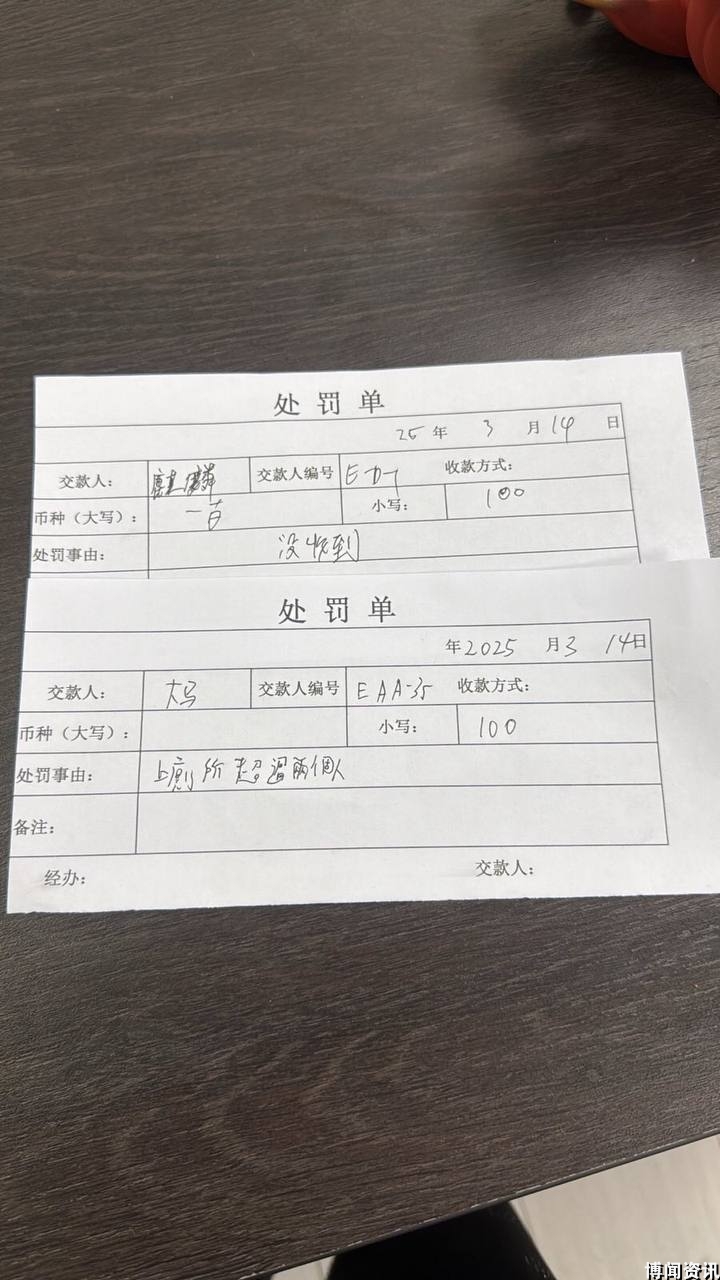 处罚单
25年 3 月 14 日
交款人： 麒麟 交款人编号 收款方式：
币种（大写）： 一百 小写： 100
处罚事由： 没收到
处罚单
年2025 月3 14日
交款人： 大马 交款人编号 EAA-35 收款方式：
币种（大写）： 小写： 100
处罚事由： 上廁所超過兩個人
备注：
经办： 交款人：
博闻资讯